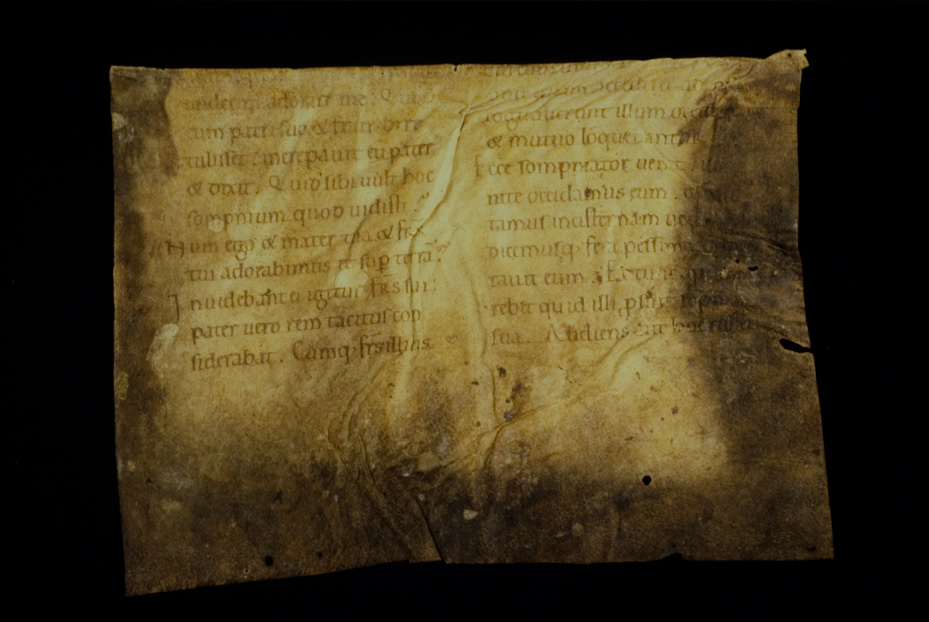 undecim adorare me. Quod
cum patri suo & fratribus re
tulisset increpauit eu pater
& dixit. Quid sibi uult hoc
sompnium quod uidisti
Num ego & mater tua & frs
tui adorabimus te sup terrā?
Inuidebant ei igitur frs sui:
pater uero rem tacitus con
siderabat. Cumq frs illius
cogitauerunt illum occi
& mutuo loquebantur
Ecce sompniator uenit
nite occidamus eum.
tamus in cisternam
dicemusq fera pessima
rauit eum. Et tunc
rebit quid illi psint
sua. Audiens aut hoc ruben